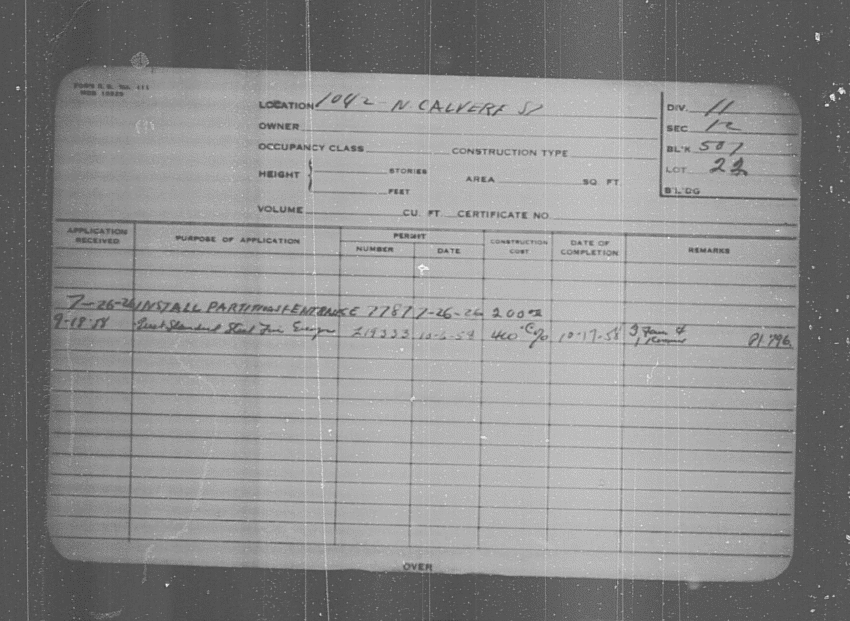 LOCATION 1042 N. CALVERT St
DIV. 11
OWNER
SEC 12
OCCUPANCY CLASS CONSTRUCTION TYPE
BL'K 507
HEIGHT STORIES AREA SQ. FT.
LOT 22
FEET
B'L'DG
VOLUME CU. FT. CERTIFICATE NO.
APPLICATION RECEIVED PURPOSE OF APPLICATION PERMIT NUMBER DATE CONSTRUCTION COST DATE OF COMPLETION REMARKS
7-26-26 INSTALL PARTITIONS & ENTRANCE 7787 7-26-26 200
9-18-58 Standard Steel Fire 400 10-17-58 3
OVER